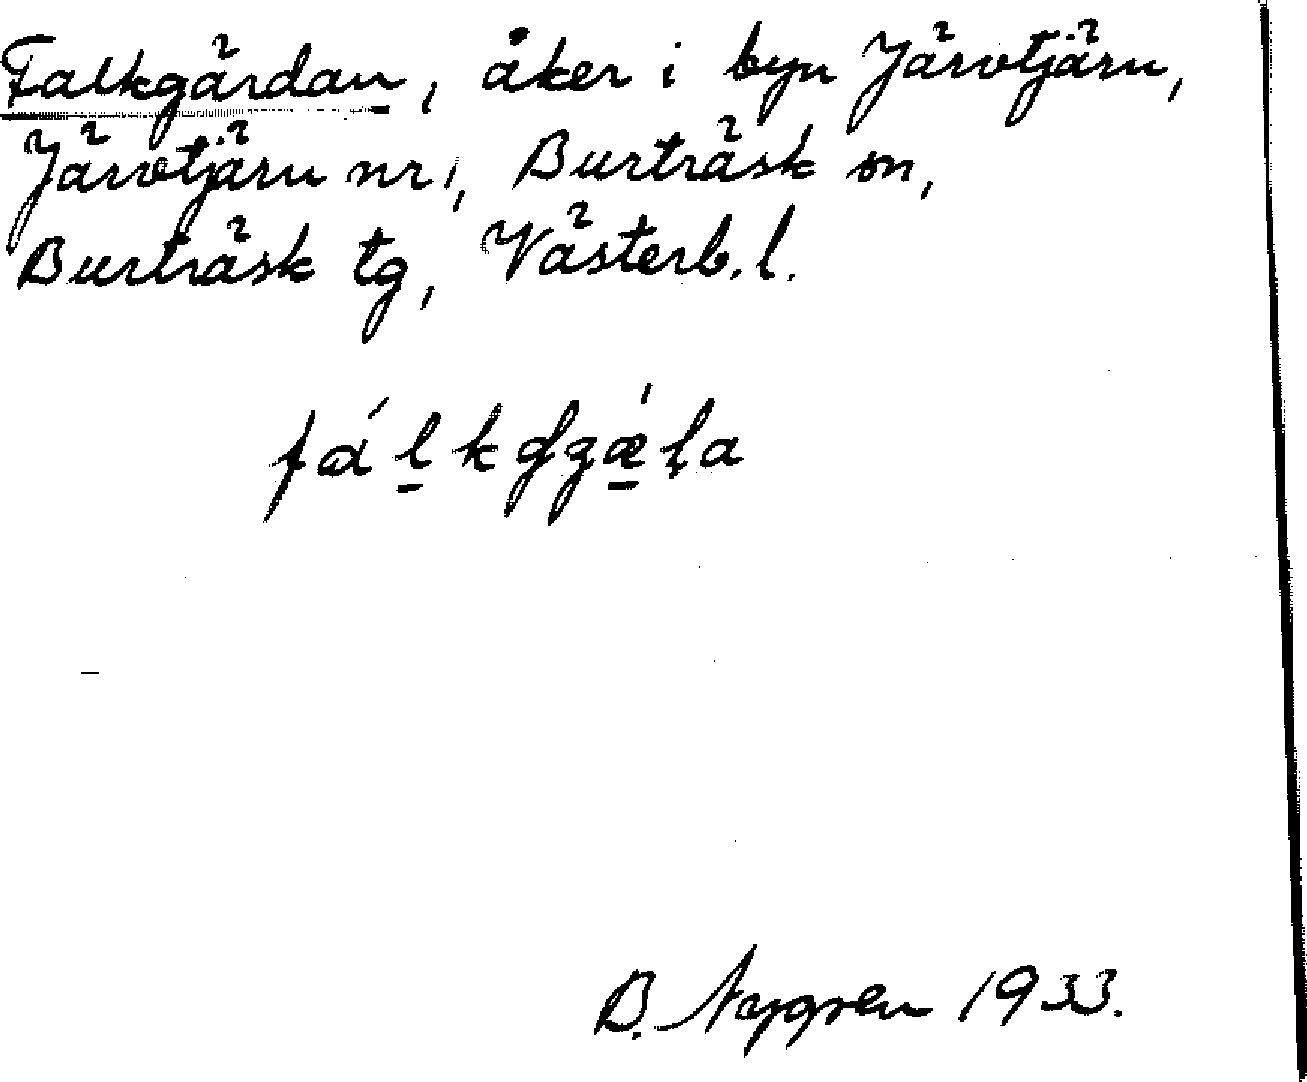 Falkgärdan, åker i byn Järvtjärn,
Järvtjärn nr 1, Burträsk sn,
Burträsk tg, Västerb. l.
B. Nygren 1933.